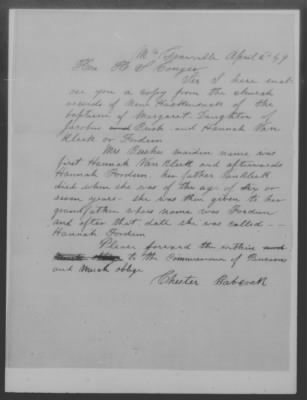 April 2nd 49
Hon
Sir I here encl
ose you a copy from the church
records of New Hackensack of the
baptism of Margaret Daughter of
Jacobus and Bush and Hannah Van
Kleeck or Fordum
Mrs maiden name was
first Hannah Van Kleeck and afterwards
Hannah Fordum her father Van Kleeck
died when she was of the age of six or
seven years - she was then given to her
grandfather whose name was Fordum
and after that date she was called -
Hannah Fordum
Please forward the within and
to the Commissioner of Pensions
and Much oblige
Chester Babcock